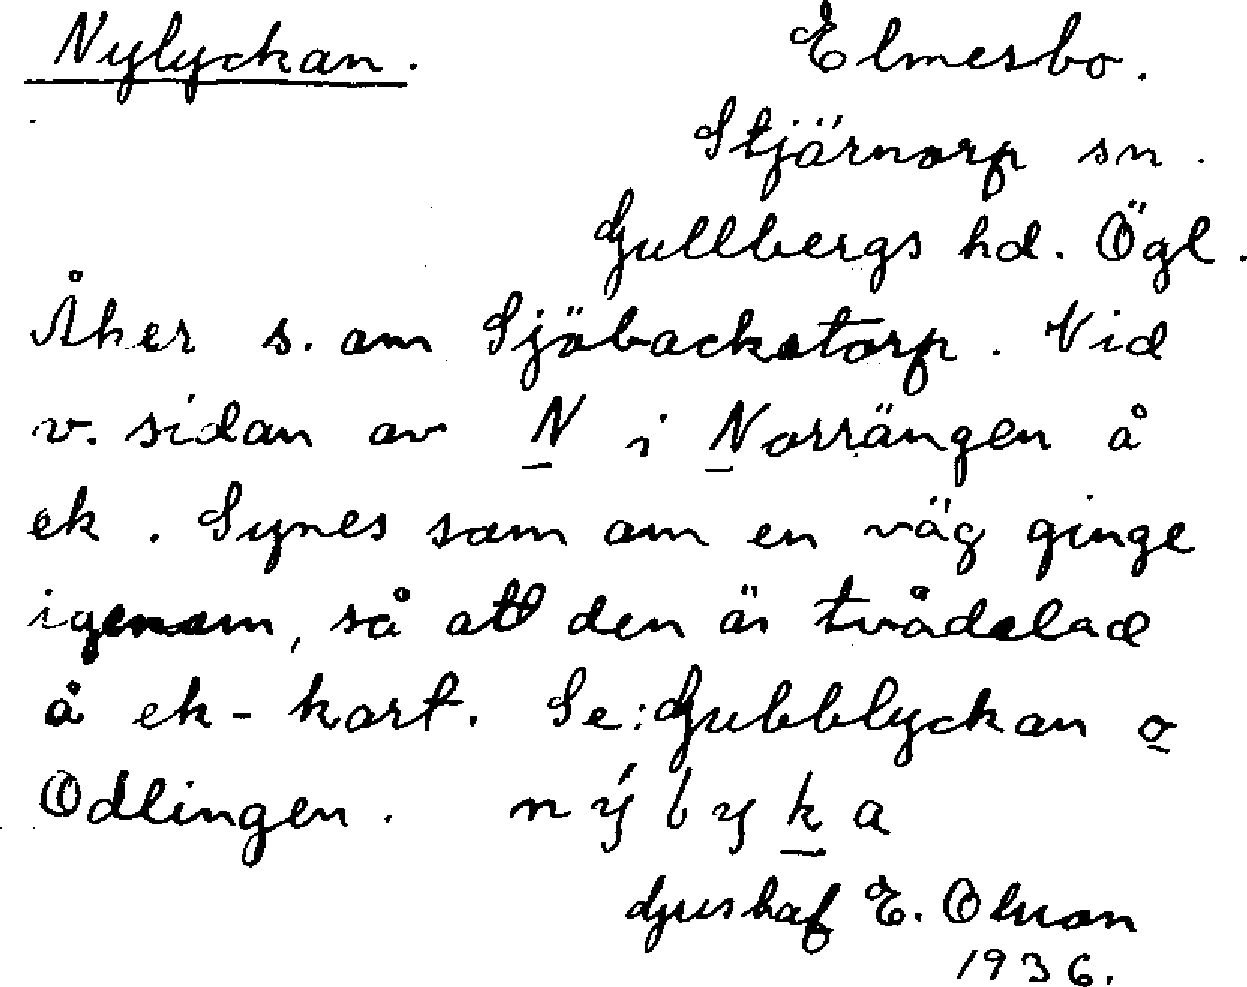 Nylyckan. Elmesbo.
Stjärnorp sn.
Gullbergs hd. Ögl.
Åker s. om Sjöbackstorp. Vid
v. sidan av N i Norrängen å
ek. Synes som om en väg ginge
igenom, så att den är tvådelad
å ek-kart. Se: Gubblyckan o
Odlingen. nýlyka
E. Olson
1936.